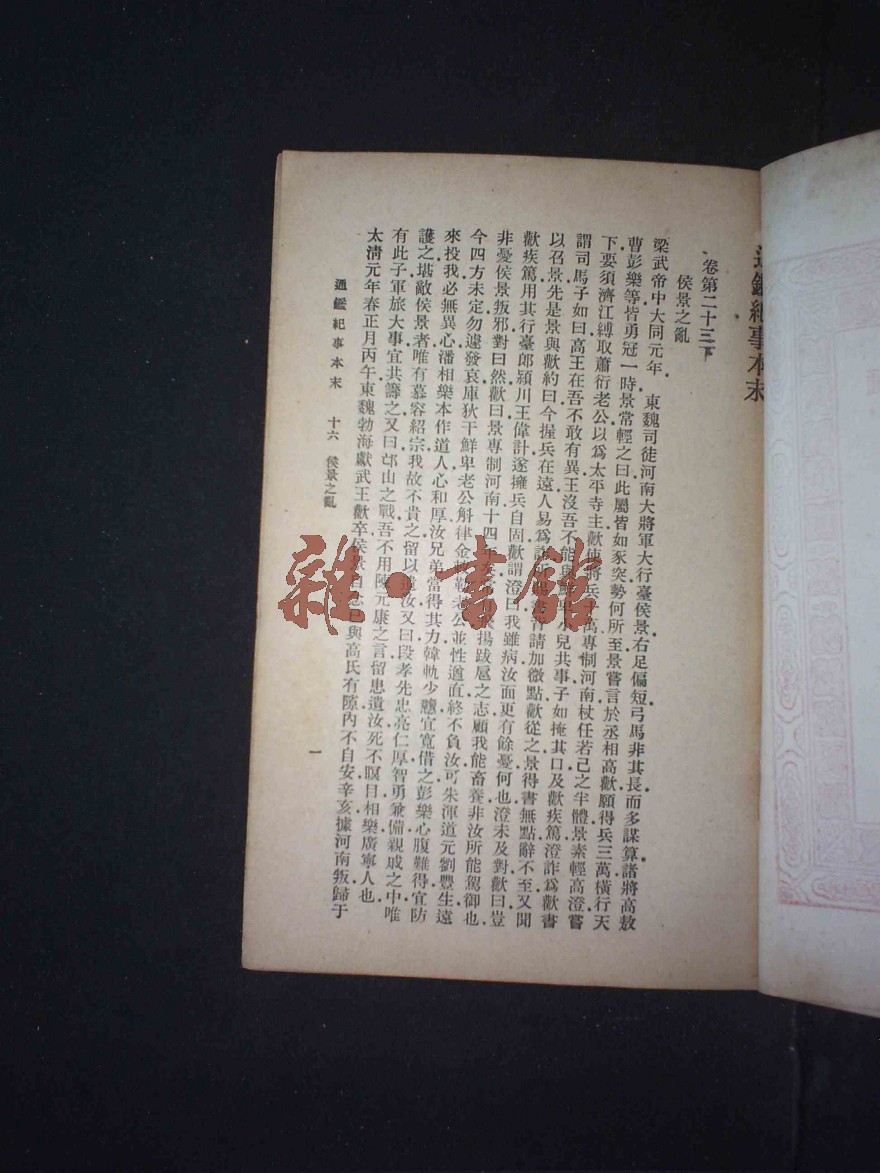 通鑑紀事本末
卷第二十三下
侯景之亂
梁武帝中大同元年．東魏司徒河南大將軍大行臺侯景右足偏短弓馬非其長．而多謀算諸將高敖
曹彭樂等皆勇冠一時景常輕之曰此屬皆如豕突勢何所至景嘗言於丞相高歡願得兵三萬橫行天
下要須濟江縛取蕭衍老公以爲太平寺主歡使將兵十萬專制河南杖任若己之半體景素輕高澄嘗
謂司馬子如曰高王在吾不敢有異王沒吾不能與鮮卑小兒共事子如掩其口及歡疾篤澄詐爲歡書
以召景先是景與歡約曰今握兵在遠人易爲詐所 書背請加微點歡從之景得書無點辭不至又聞
歡疾篤用其行臺郎潁川王偉計遂擁兵自固歡謂澄曰我雖病汝面更有餘憂何也澄未及對歡曰豈
非憂侯景叛邪對曰然歡曰景專制河南十四年 揚跋扈之志顧我能畜養非汝所能駕御也．
今四方未定勿遽發哀庫狄干鮮卑老公斛律金敕勒老公並性遒直終不負汝可朱渾道元劉豐生遠
來投我必無異心潘相樂本作道人心和厚汝兄弟當得其力韓軌少戇宜寬借之彭樂心腹難得宜防
護之堪敵侯景者唯有慕容紹宗我故不貴之留以遺汝又曰段孝先忠亮仁厚智勇兼備親戚之中唯
有此子軍旅大事宜共籌之又曰邙山之戰吾不用陳元康之言留患遺汝死不瞑目相樂廣寧人也．
太淸元年春正月丙午東魏勃海獻武王歡卒侯景自念己與高氏有隙內不自安辛亥據河南叛歸于
通鑑紀事本末 十六 侯景之亂
一
雜·書館